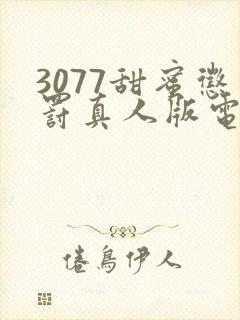 3077甜蜜懲
罰真人版電
倦鳥伊人